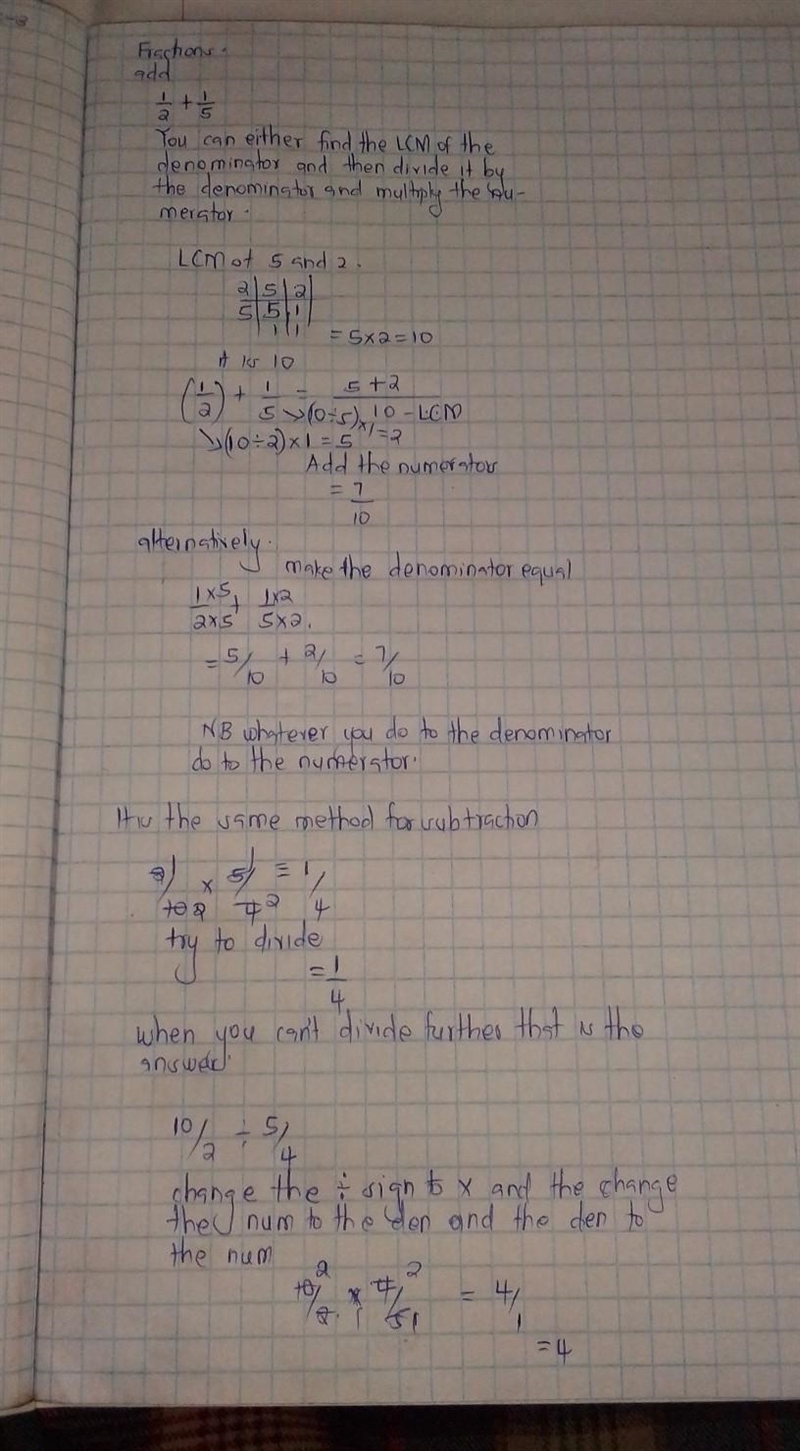 Fractions.
add
1/2 + 1/5
You can either find the LCM of the
denominator and then divide it by
the denominator and multiply the nu-
merator.
LCM of 5 and 2.
2 | 5 | 2
5 | 5 | 1
1 | 1
= 5x2=10
it is 10
(1/2) + 1/5 = 5+2
↘(10÷5)x1=2 10 - LCM
↘(10÷2)x1=5
Add the numerator
= 7/10
alternatively.
make the denominator equal
1x5/2x5 + 1x2/5x2.
= 5/10 + 2/10 = 7/10
NB whatever you do to the denominator
do to the numerator.
It is the same method for subtraction
x 5/4 = 1/4
try to divide
= 1/4
when you can't divide further that is the
answer.
10/2 ÷ 5/4
change the ÷ sign to x and the change
the num to the den and the den to
the num
10/2 x 4/5 = 4/1
=4